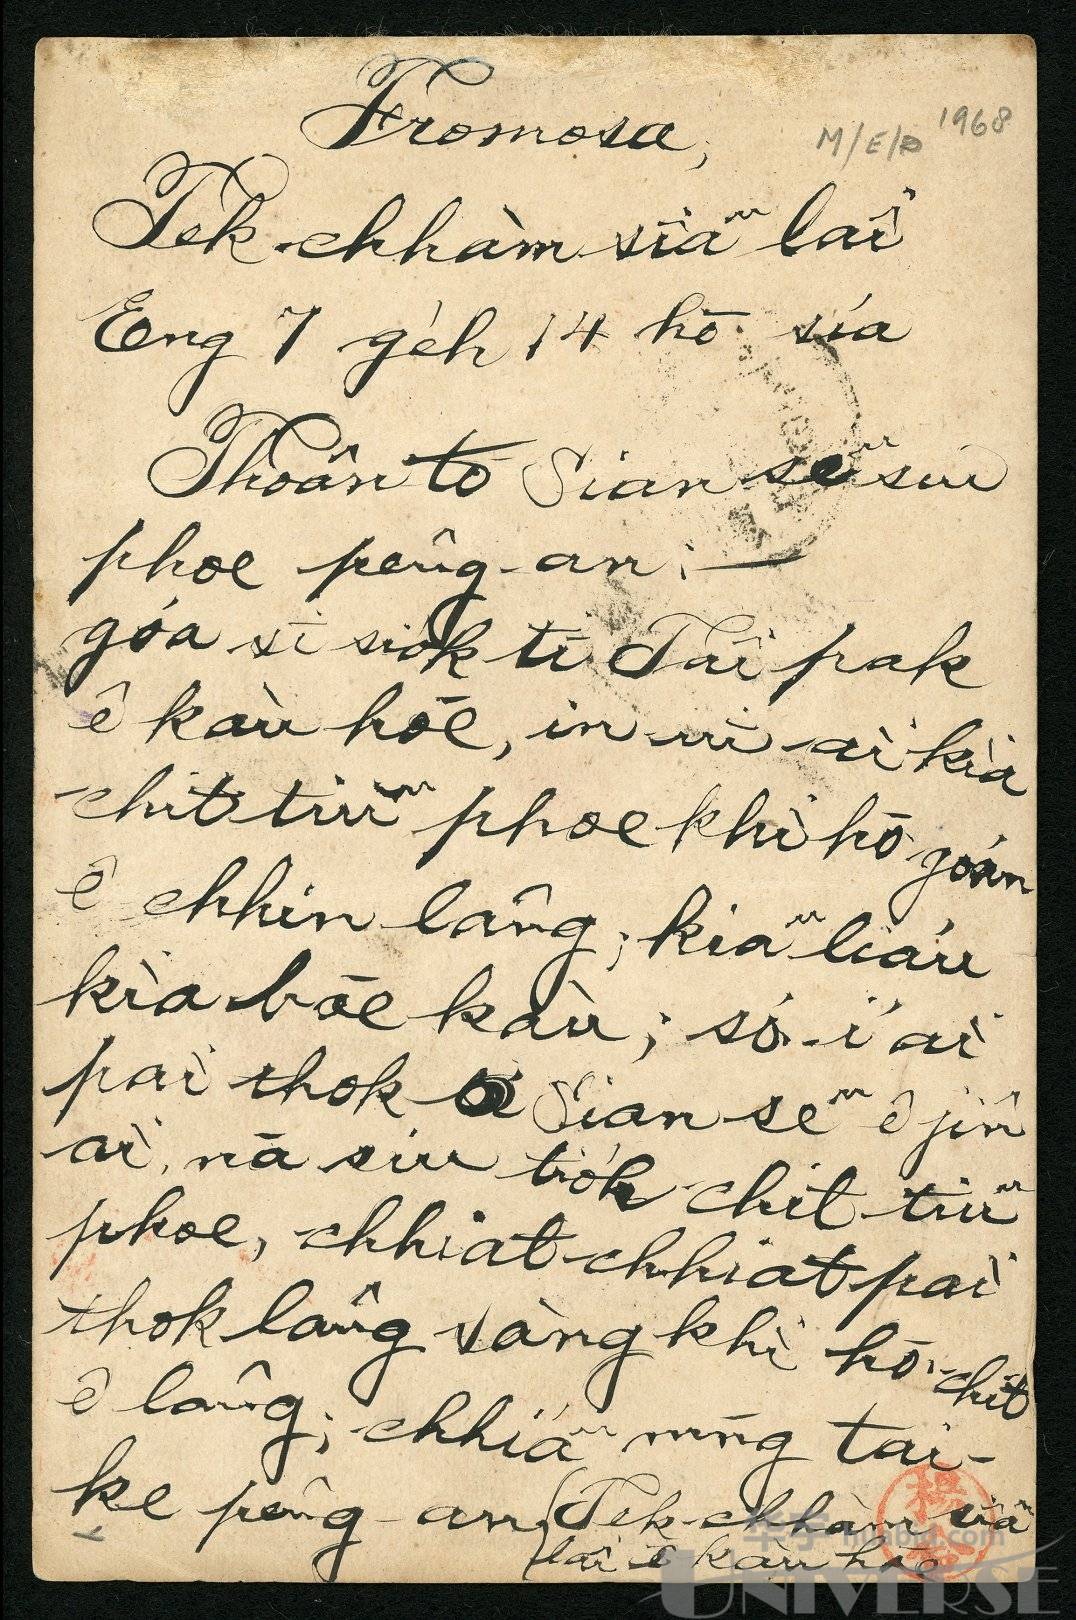 Fromosa,
M/E/R 1968
Tek-chhàm siâⁿ lāi
Eng 7 ge̍h 14 hō siá
Thoân tō Sian seⁿ siu
phoe pêng-an: —
góa sī sio̍k tī Tâi pak
ê kàu hōe, in-ūi ài kià
chi̍t tiuⁿ phoe khì hō͘ goán
ê chhin lâng; kiaⁿ liáu
kià bōe kàu; só͘-í ài
pài thok Sian seⁿ ê jîn
ài, nā siu tio̍h chit tiuⁿ
phoe, chhiat-chhiat pài
thok lâng sàng khì hō͘ chit
ê lâng; chhiáⁿ nn̄g tai-
ke pêng-an (Tek-chhàm siâⁿ
lāi ê kàu hōe
楊
UNIVERSE